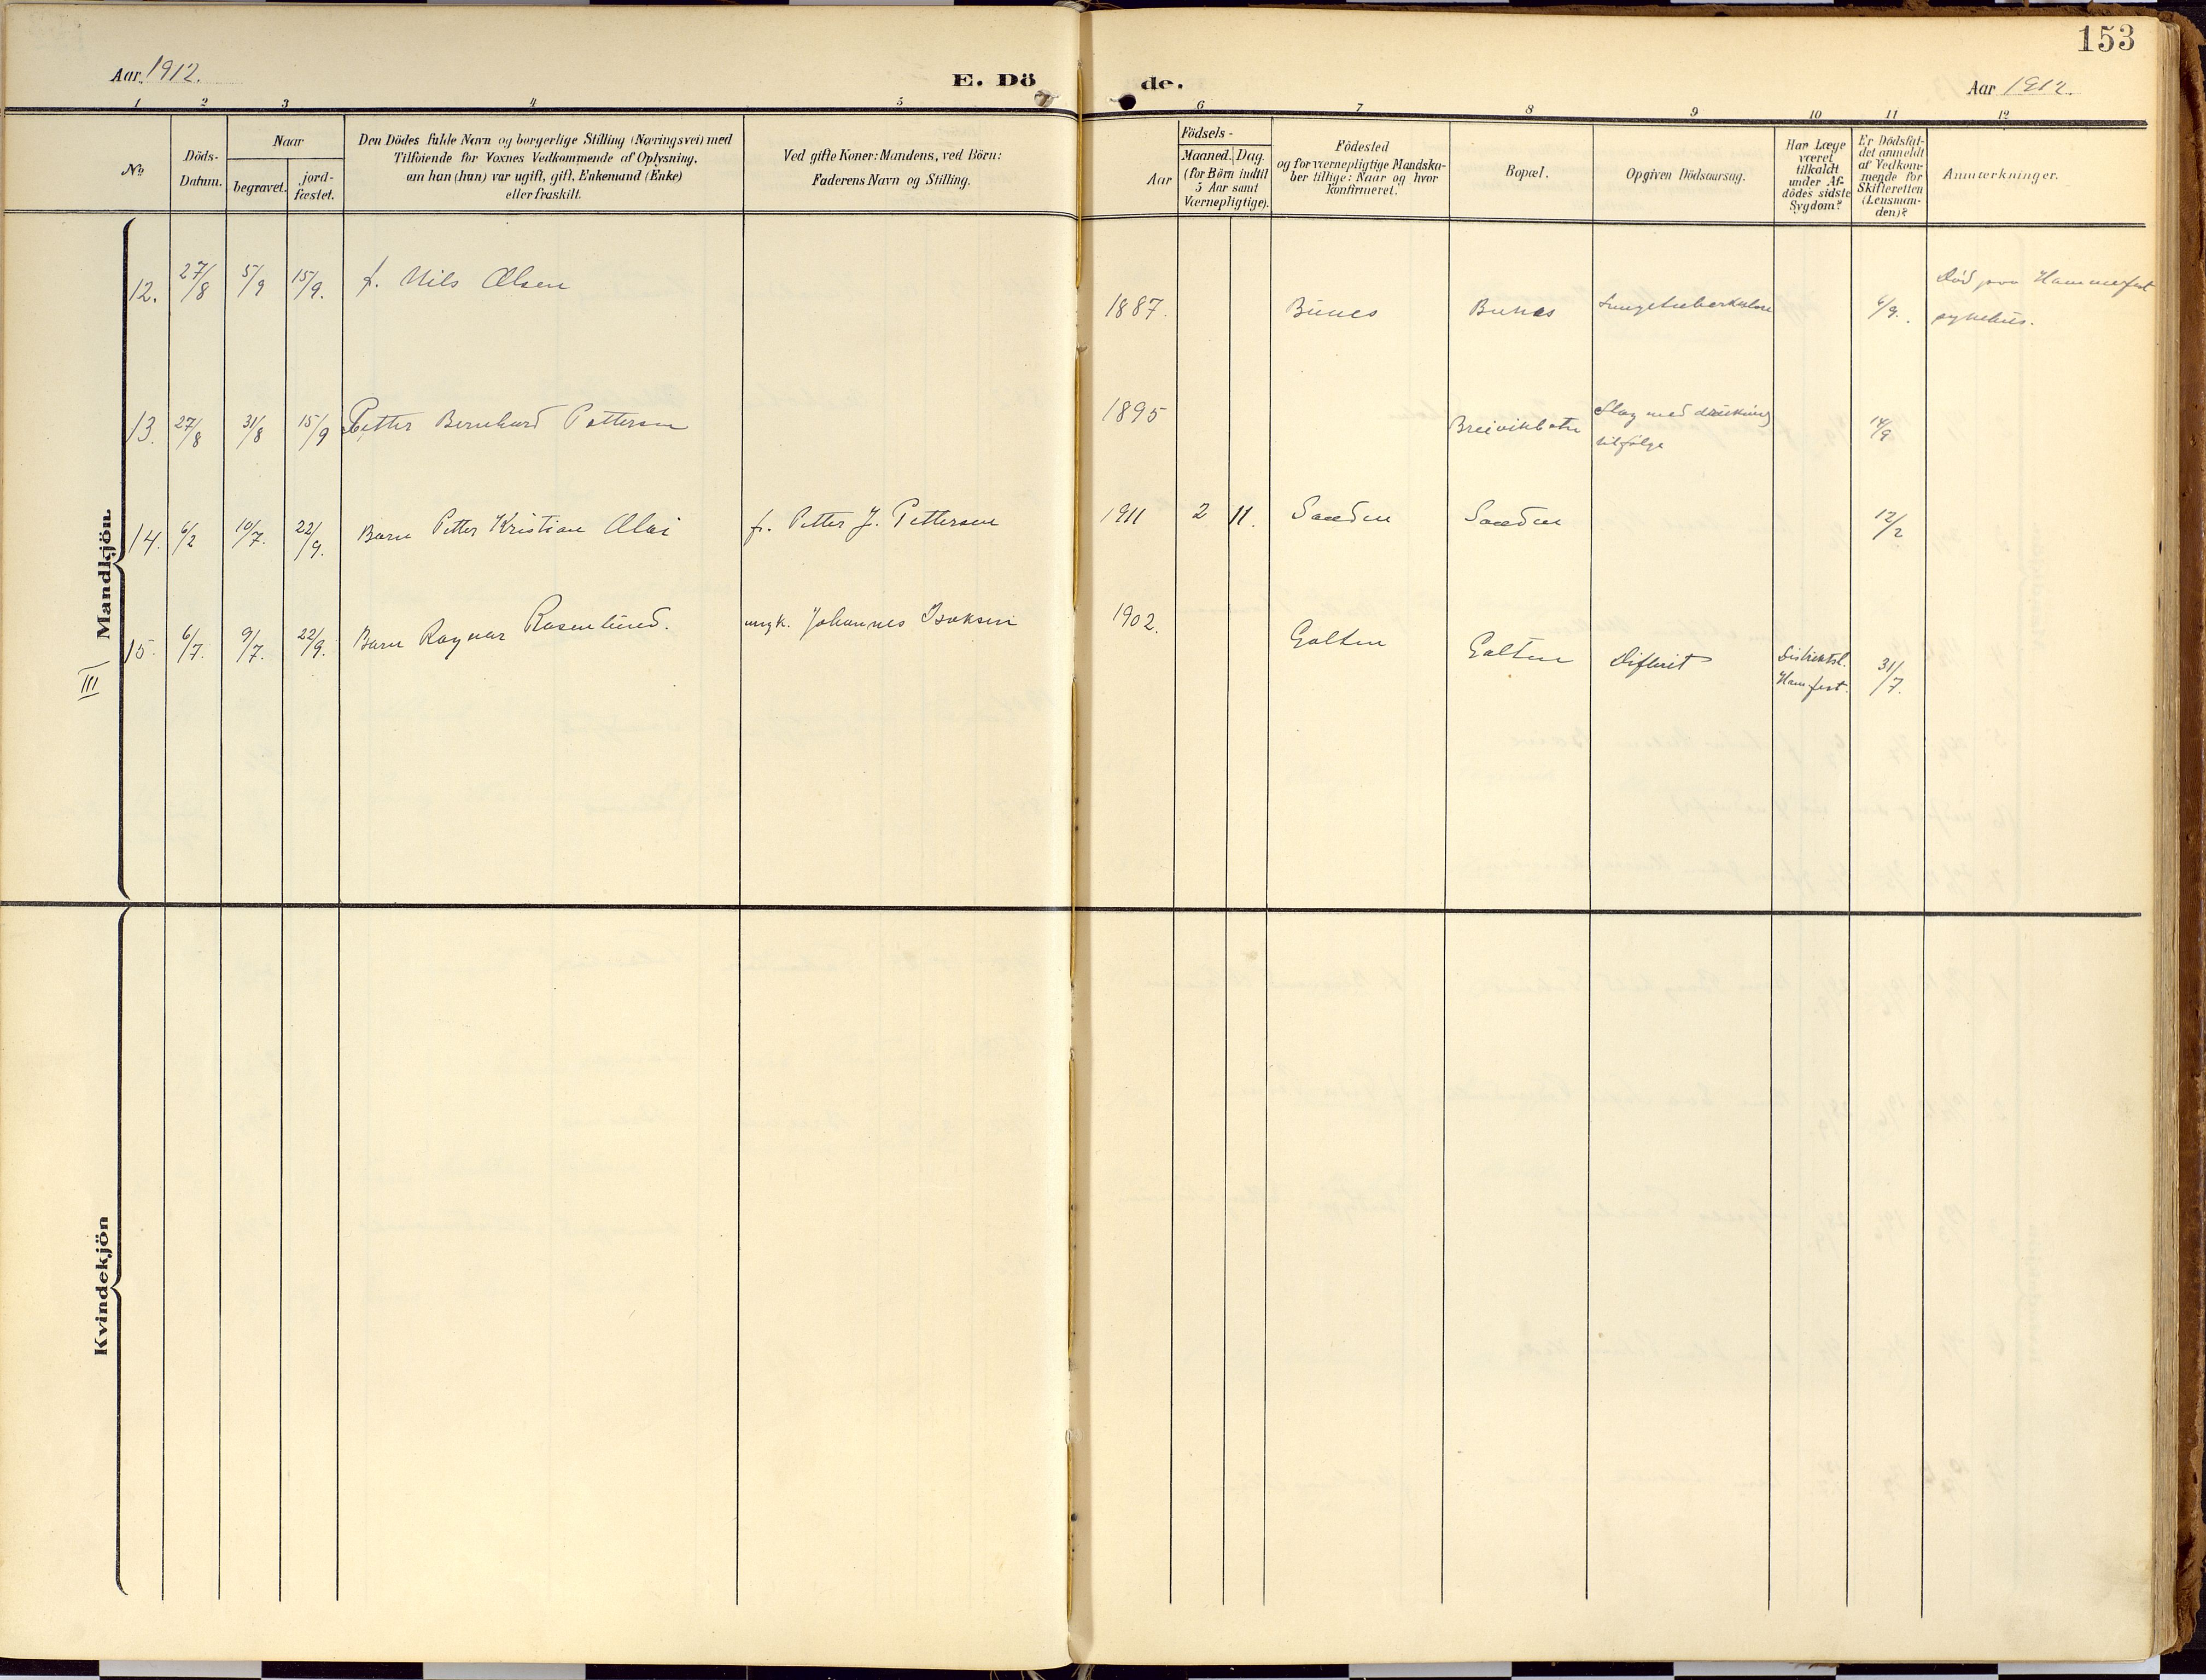 153
Aar 1912.
E. Dö
de.
Aar 1912.
1 2 3 4 5 6 7 8 9 10 11 12
No
Döds-
Datum.
Naar
begravet.
jord-
fæstet.
Den Dödes fulde Navn og borgerlige Stilling (Næringsvei) med
Tilföiende for Voxnes Vedkommende af Oplysning,
om han (hun) var ugift, gift, Enkemand (Enke)
eller fraskilt.
Ved gifte Koner: Mandens, ved Börn:
Faderens Navn og Stilling.
Födsels-
Aar
Maaned. Dag.
(for Börn indtil
5 Aar samt
Værnepligtige).
Födested
og for værnepligtige Mandska-
ber tillige: Naar og hvor
konfirmeret.
Bopæl.
Opgiven Dödsaarsag.
Har Læge
været
tilkaldt
under Af-
dödes sidste
Sygdom?
Er Dödsfal-
det anmeldt
af Vedkom-
mende for
Skifteretten
(Lensman-
den)?
Anmærkninger.
Mandkjön.
III
12. 27/8 5/9 15/9. f. Nils Olsen 1887. Bunes Bunes Lungetuberkulose 6/9. Död paa Hammerfest
sykehus.
13. 27/8 31/8 15/9 Petter Bernhard Pettersen 1895 Breivikbotn Slag med drukning
tilfølge 14/9
14. 6/2 10/7. 22/9. Barn Petter Kristian Olai f. Petter J. Pettersen 1911 2 11. Sanden Sanden 12/2
15. 6/7. 9/7. 22/9. Barn Ragnar Rosenlund. ungk. Johannes Isaksen 1902. Galten Galten Difterit Distriktsl.
Hamfest. 31/7.
Kvindekjön